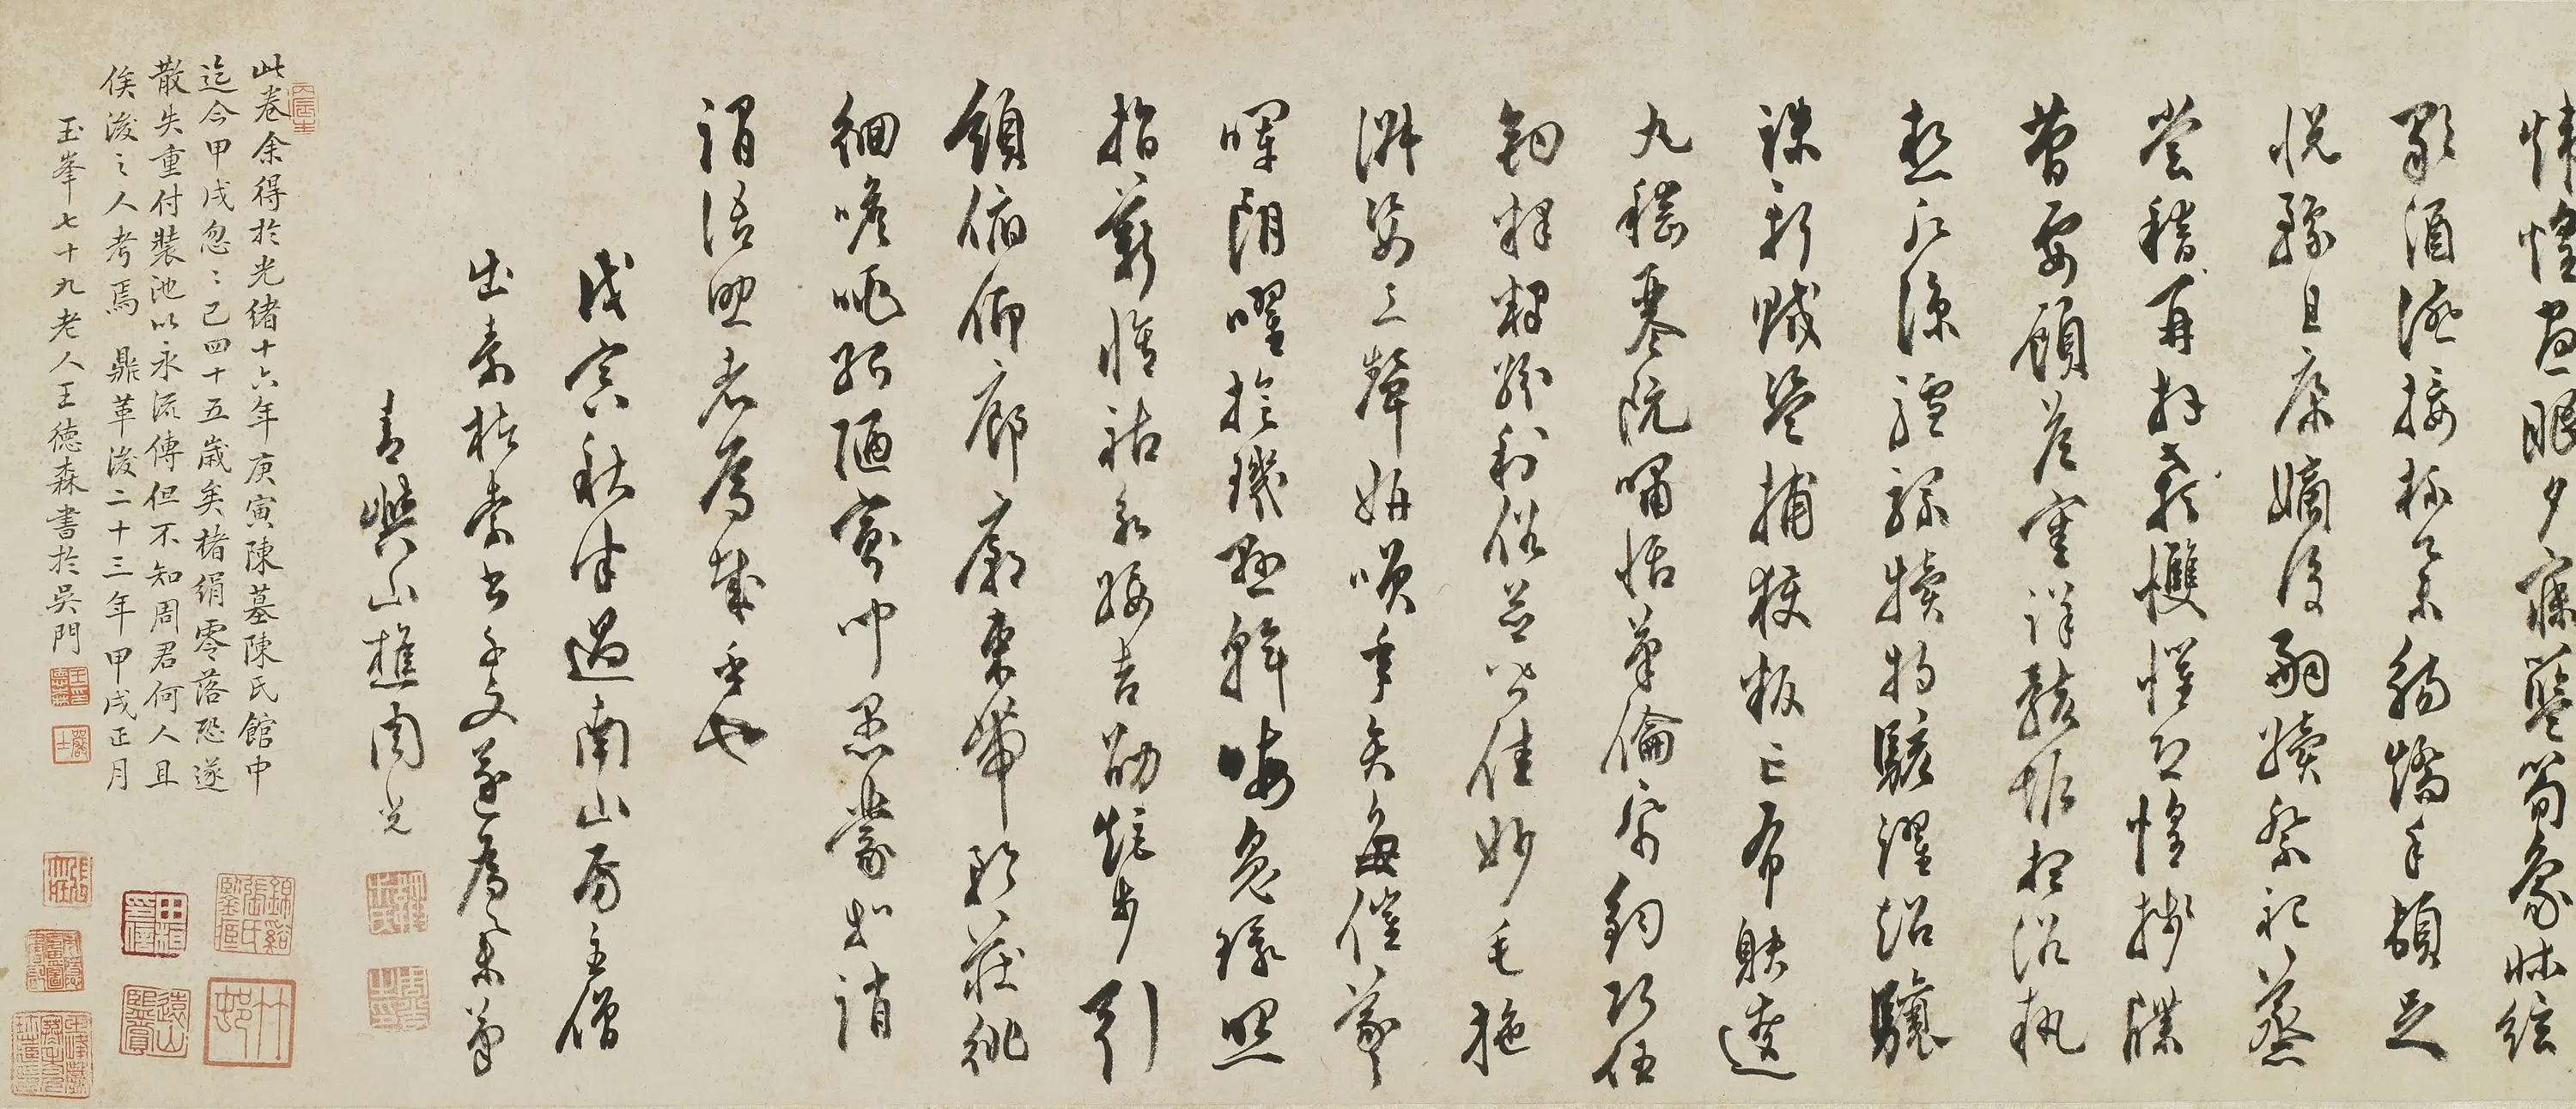 煒煌晝眠夕寐藍筍象牀絃
歌酒讌接杯舉觴矯手頓足
悅豫且康嫡後嗣續祭祀蒸
嘗稽再拜悚懼恐惶牋牒
簡要顧答審詳骸垢想浴執
熱願涼驢騾犢特駭躍超驤
誅斬賊盜捕獲叛亡布射遼
丸嵇琴阮嘯恬筆倫紙鈞巧任
釣釋紛利俗並皆佳妙毛施
淑姿工顰妍笑年矢每催羲
暉朗曜於璣懸斡晦魄環照
指薪脩祜永綏吉劭矩步引
領俯仰廊廟束帶矜莊徘
徊瞻眺孤陋寡聞愚蒙等誚
謂語助者焉哉乎也
戊寅秋過南山房主僧
出素楮索書千文遂為筆
青嶼山樵周光
此卷余得於光緒十六年庚寅陳墓陳氏館中
迄今甲戌忽〻已四十五歲矣楮絹零落恐遂
散失重付裝池以永流傳但不知周君何人且
俟後之人考焉 鼎革後二十三年甲戌正月
玉峯七十九老人王德森書於吳門
錦谿張氏鑒
竹邨
遠山鑒賞